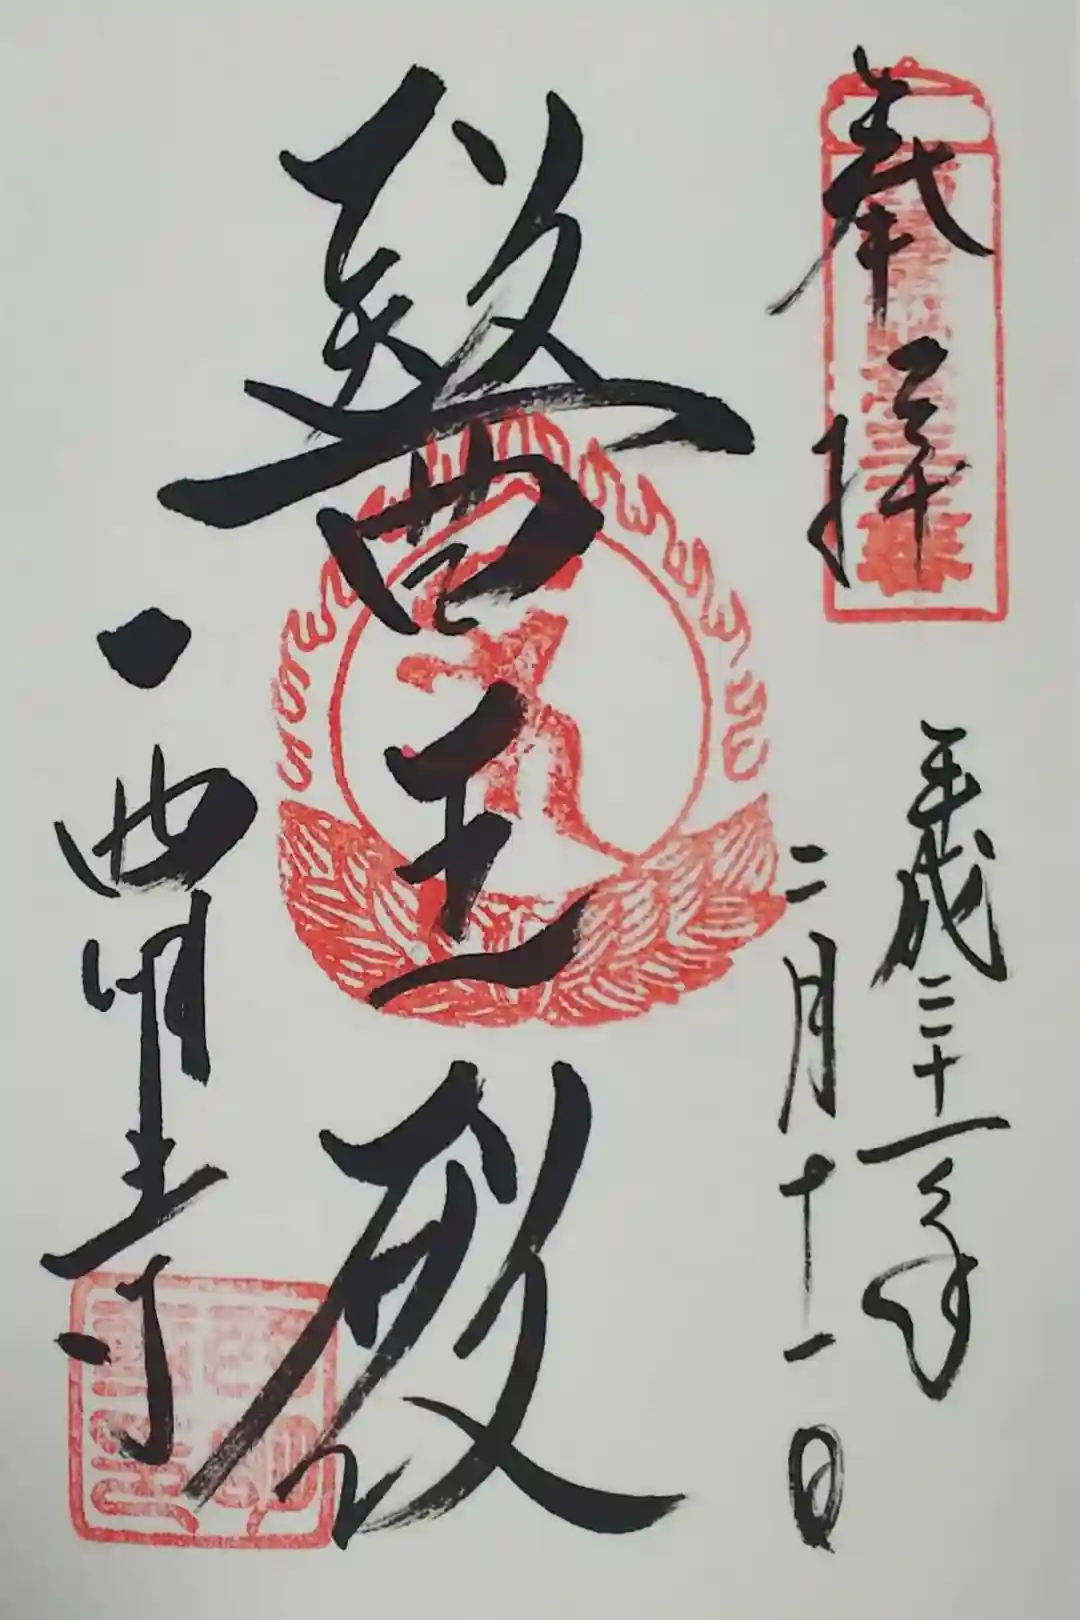 奉拝
平成二十一年
二月十一日
醫王殿
西明寺